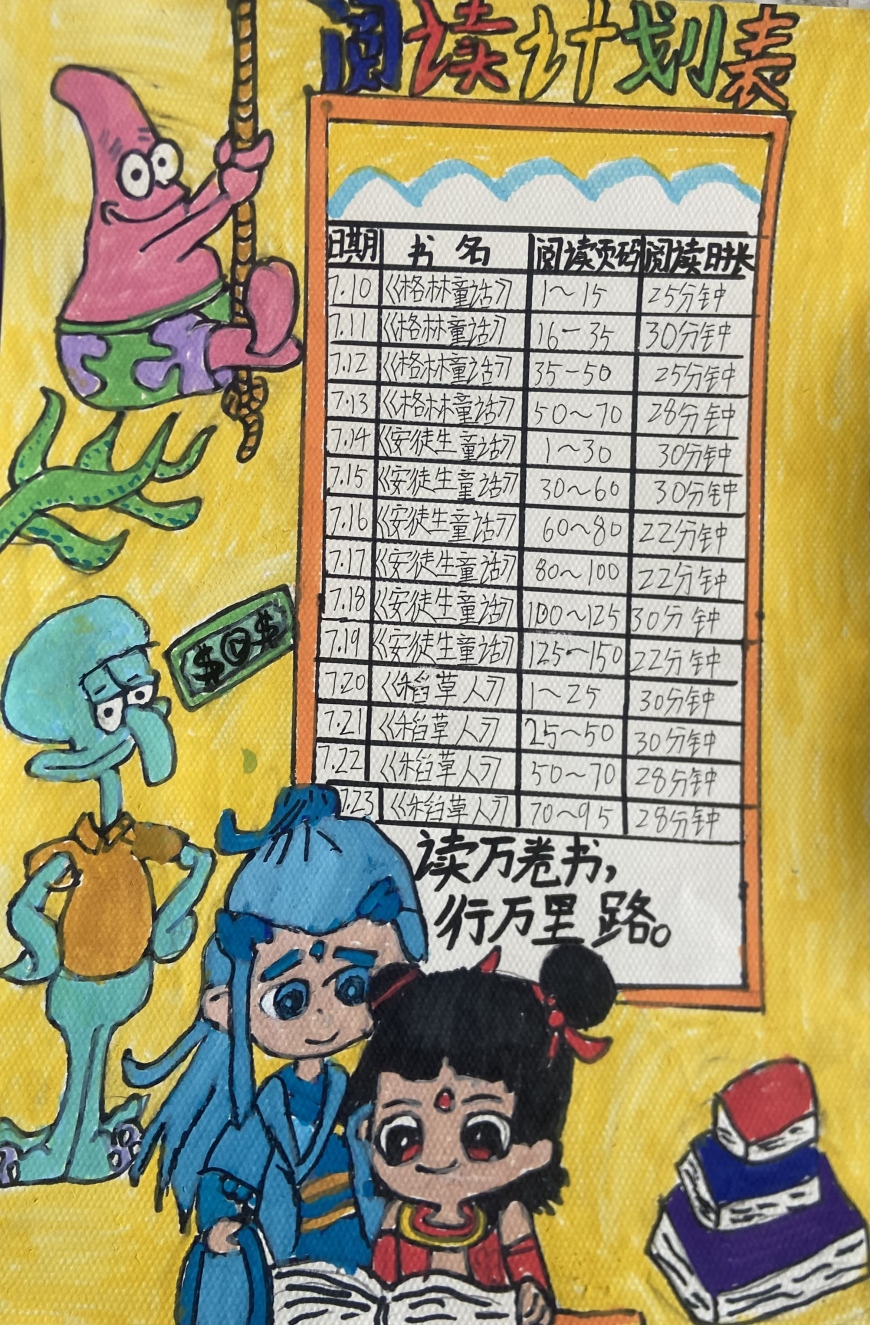 阅读计划表
日期 书名 阅读页码 阅读时长
7.10 《格林童话》 1~15 25分钟
7.11 《格林童话》 16-35 30分钟
7.12 《格林童话》 35-50 25分钟
7.13 《格林童话》 50~70 28分钟
7.14 《安徒生童话》 1~30 30分钟
7.15 《安徒生童话》 30~60 30分钟
7.16 《安徒生童话》 60~80 22分钟
7.17 《安徒生童话》 80~100 22分钟
7.18 《安徒生童话》 100~125 30分钟
7.19 《安徒生童话》 125~150 22分钟
7.20 《稻草人》 1~25 30分钟
7.21 《稻草人》 25~50 30分钟
7.22 《稻草人》 50~70 28分钟
7.23 《稻草人》 70~95 28分钟
$ $
读万卷书，
行万里路。